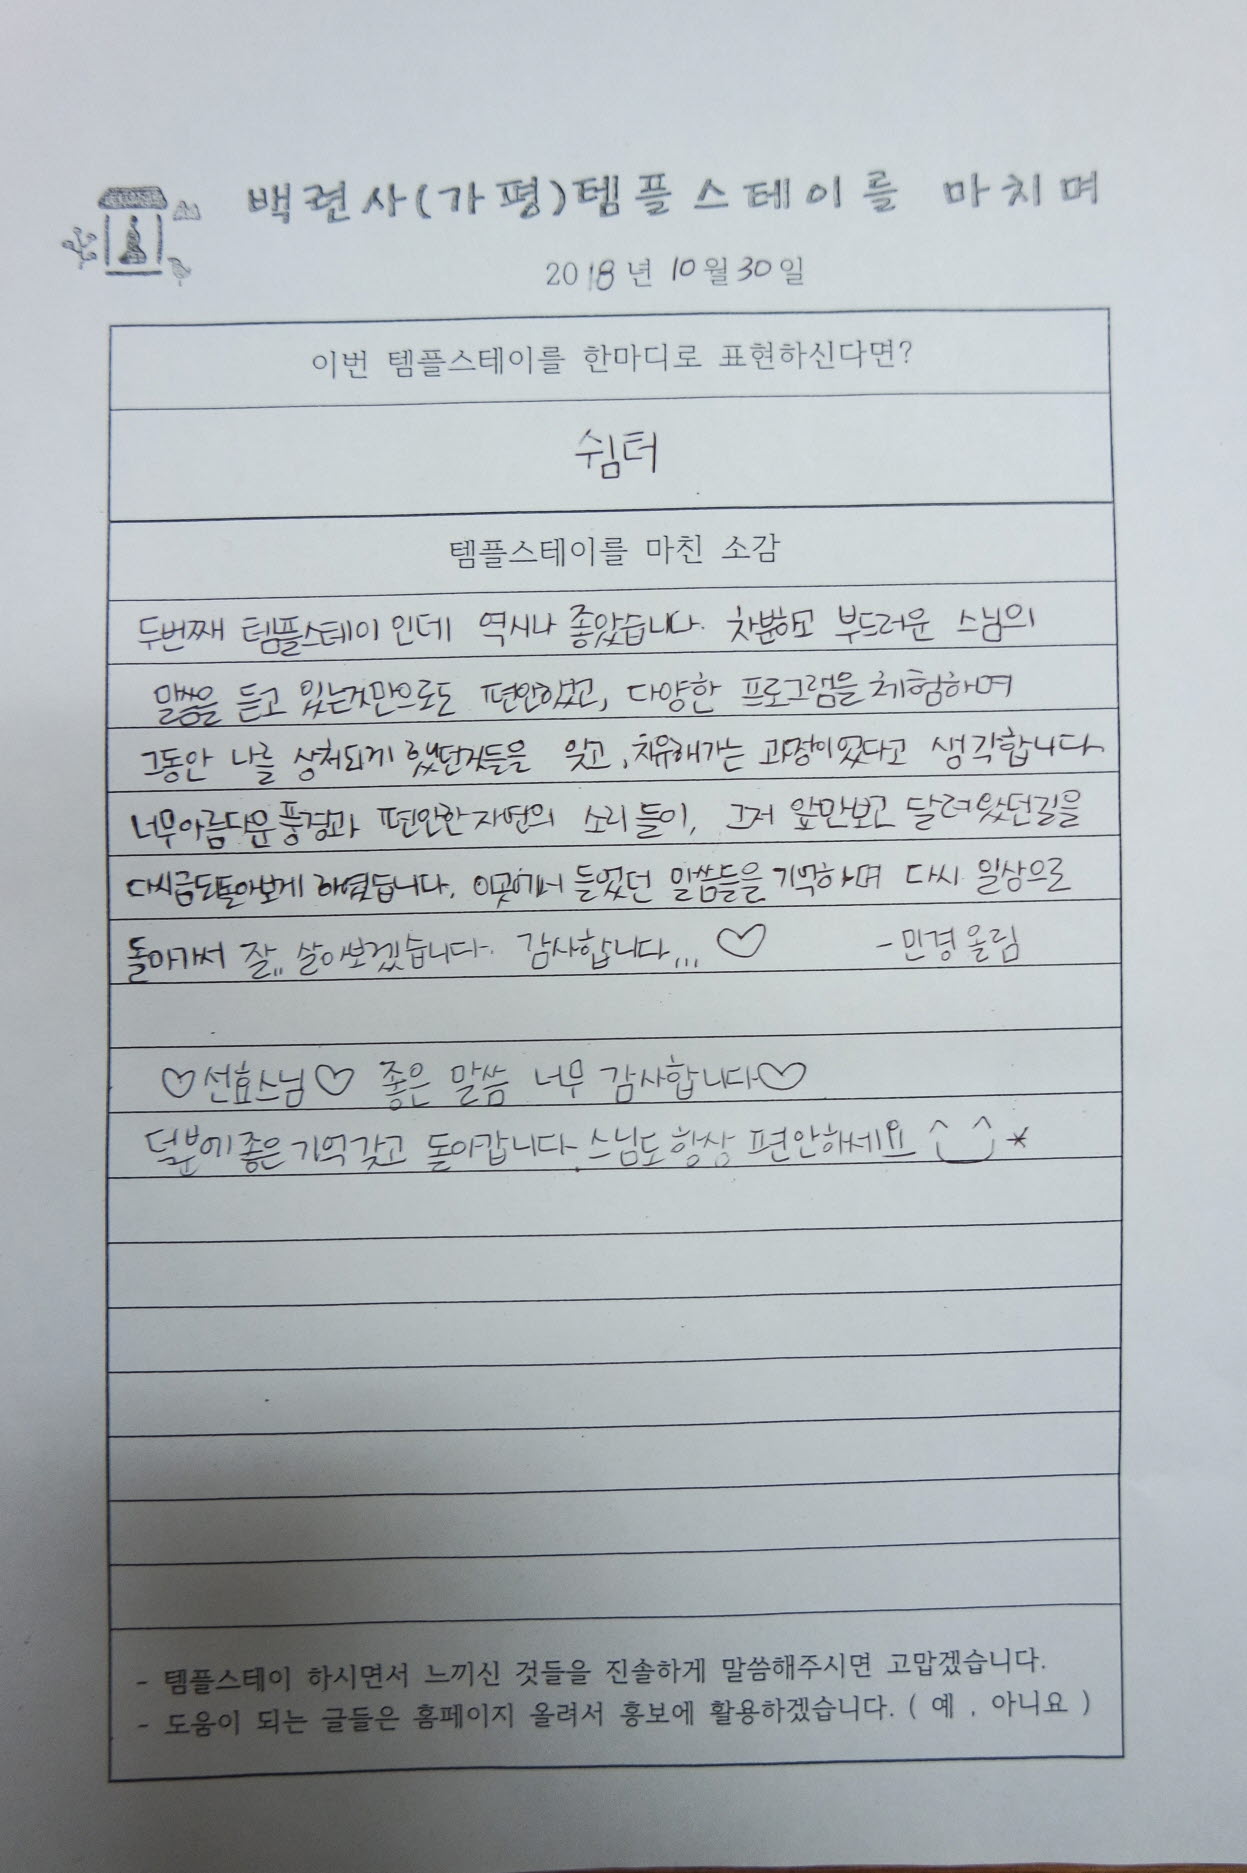 백련사(가평)템플스테이를 마치며
2018년 10월 30일
이번 템플스테이를 한마디로 표현하신다면?
쉼터
템플스테이를 마친 소감
두번째 템플스테이인데 역시나 좋았습니다. 차분하고 부드러운 스님의
말씀을 듣고 있는것만으로도 편안했고, 다양한 프로그램을 체험하며
그동안 나를 상처되게 했던것들을 잊고, 치유해가는 과정이었다고 생각합니다
너무아름다운 풍경과 편안한 자연의 소리들이, 그저 앞만보고 달려왔던길을
다시금 되돌아보게 하였습니다. 이곳에서 들었던 말씀들을 기억하며 다시 일상으로
돌아가서 잘,, 살아보겠습니다. 감사합니다,,, ♡ -민경올림
♡선효스님♡ 좋은 말씀 너무 감사합니다♡
덕분에 좋은 기억갖고 돌아갑니다. 스님도 항상 편안하세요 ^_^*
- 템플스테이 하시면서 느끼신 것들을 진솔하게 말씀해주시면 고맙겠습니다.
- 도움이 되는 글들은 홈페이지 올려서 홍보에 활용하겠습니다. ( 예 , 아니요 )